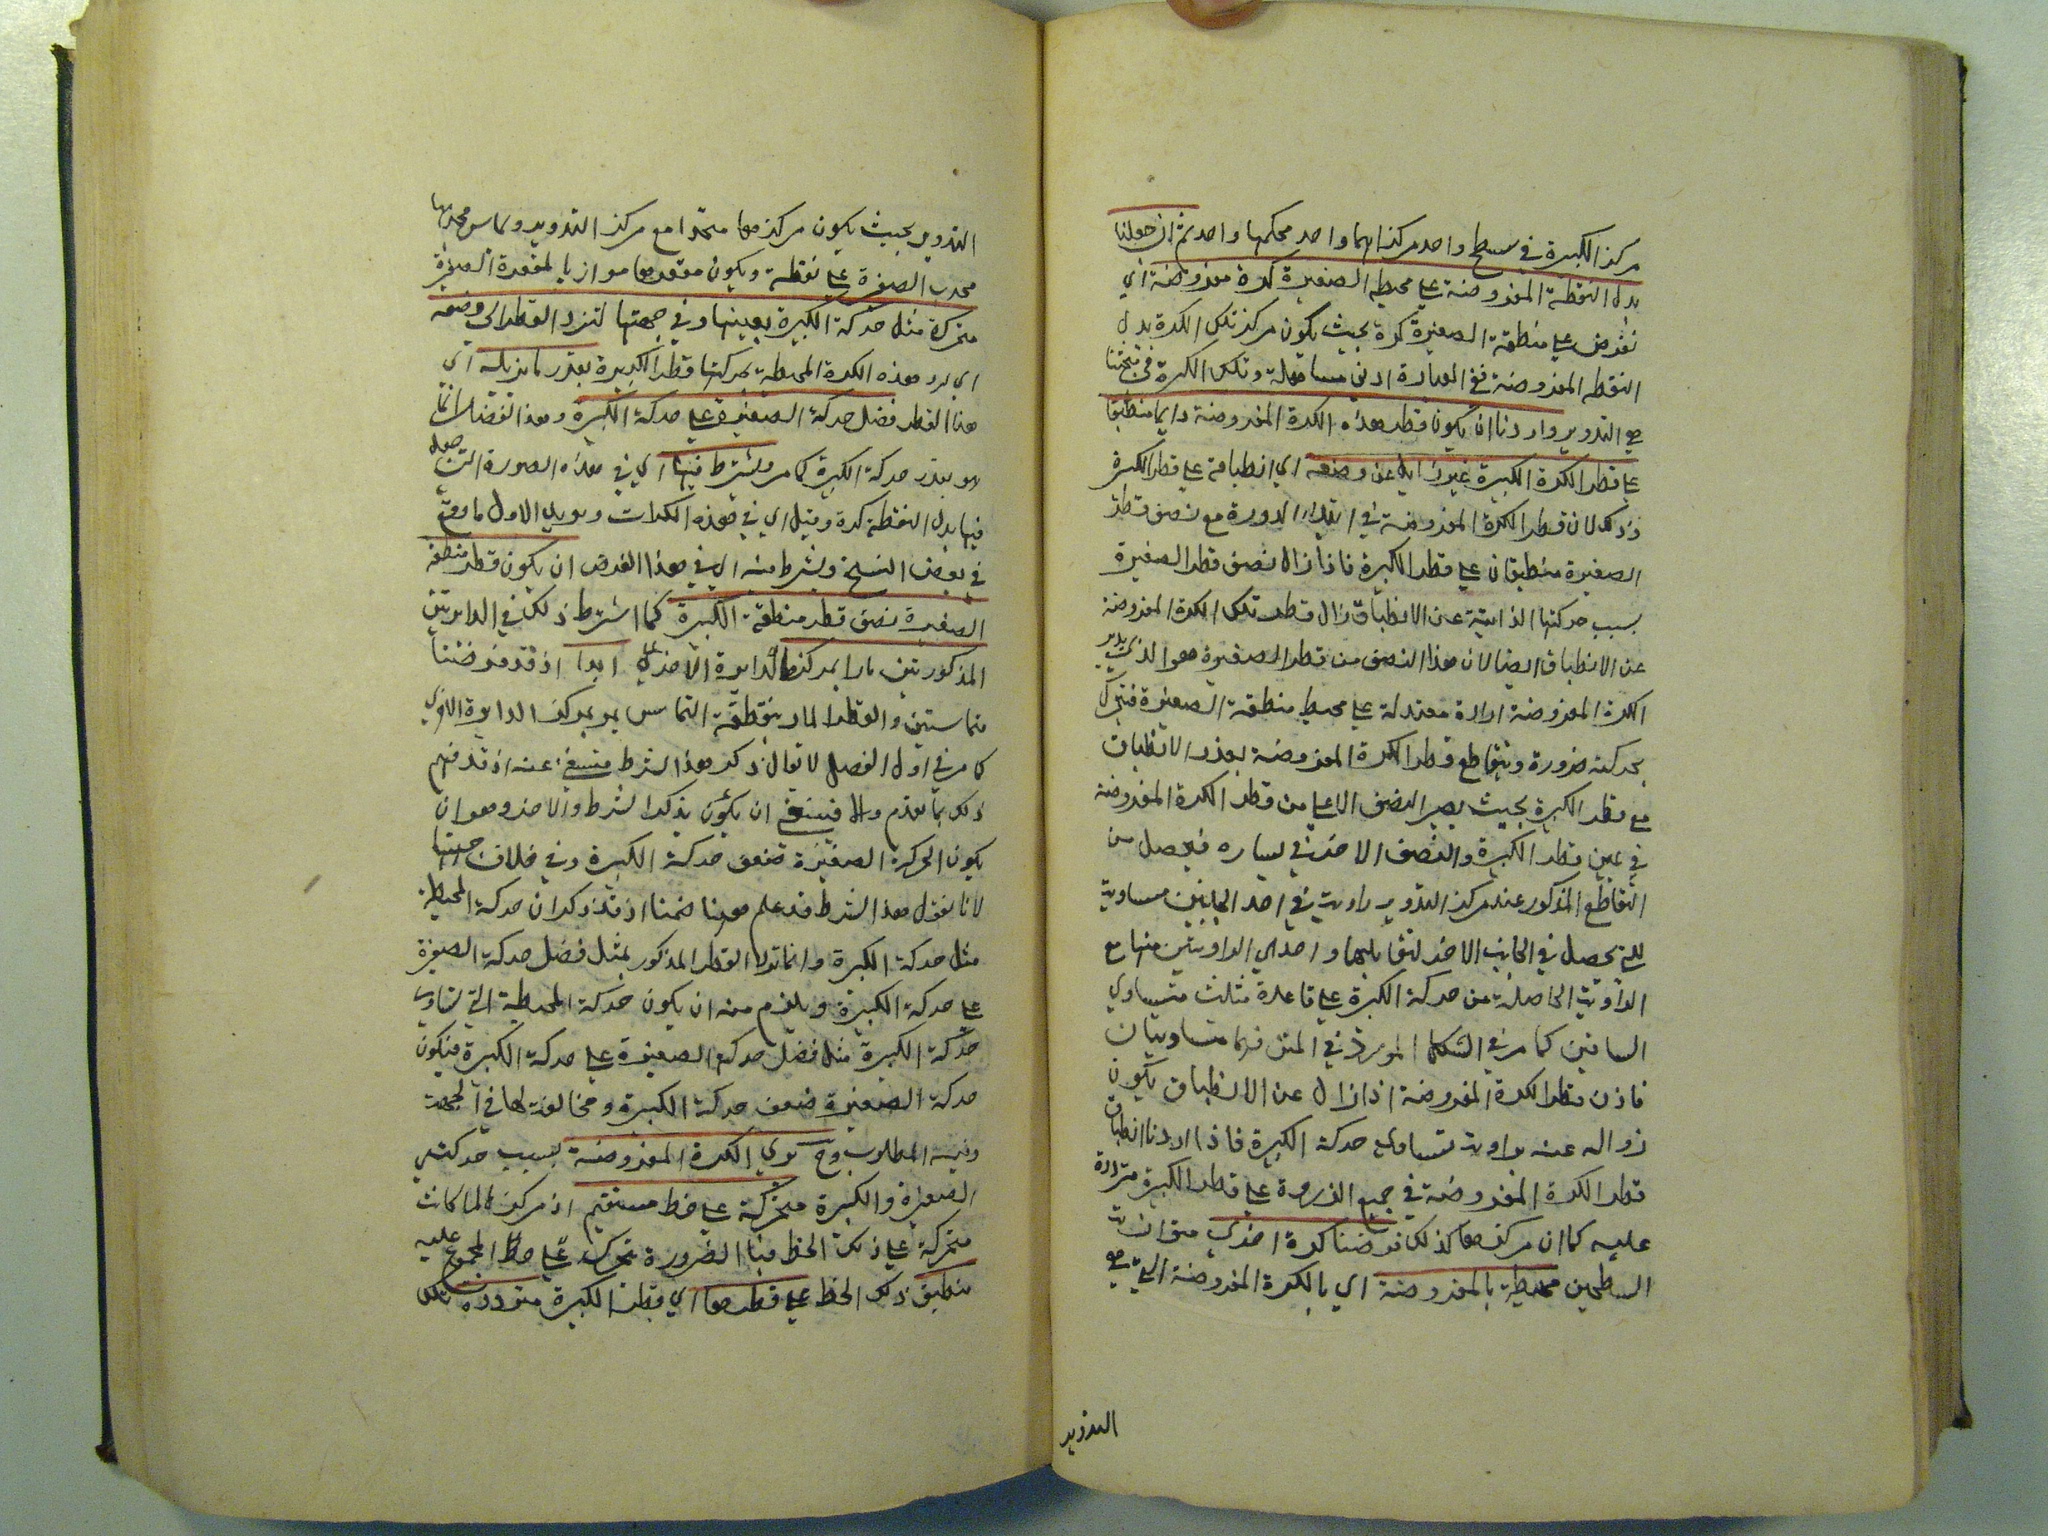 مركز الكبيرة في سطح واحد مركزاهما واحد محكمها واحد ثم ان جعلنا
بدل النقطة المفروضة على محيط الصغيرة كرة مفروضة اي
نفرض على منطقة الصغيرة كرة بحيث يكون مركز تلك الكرة بدل
النقطه المفروضة ففي العبارة ادنى مساهلة وتلك الكرة في
هو التدوير واردنا ان يكون قطر هذه الكرة المفروضة دايما منطبقا
على قطر الكرة الكبيرة غير زايل عن وضعه اي انطباقه على قطر الكبيرة
وذلك لان قطر الكرة المفروضة في ابتداء الدورة مع نصف قطر
الصغيرة منطبقان على قطر الكبيرة فاذا زال نصف قطر الصغيرة
بسبب حركتها الذاتية عن الانطباق زال قطر تلك الكرة المفروضة
عن الانطباق ايضا لان هذا النصف من قطر الصغيرة هو الذي يدير
الكرة المفروضة ادارة معتدلة على محيط منطقة الصغيرة فتتحرك
بحركته ضرورة ويتقاطع قطر الكرة المفروضة بعد الانطباق
مع قطر الكبيرة بحيث يصير النصف الاعلى من قطر الكرة المفروضة
في يمين قطر الكبيرة والنصف الاخر في يساره فيحصل من
التقاطع المذكور عند مركز التدوير زاوية في احد الجانبين مساوية
للتي تحصل في الجانب الاخر لتقابلهما واحدى الزاويتين منها مع
الزاوية الحاصلة من حركة الكبيرة على قاعدة مثلث متساوي
الساقين كما مر في الشكل المورد في المتن فهما متساويتان
فاذن قطر الكرة المفروضة اذا زال عن الانطباق يكون
زواله عنه بزاوية تساوي حركة الكبيرة فاذا اردنا انطباق
قطر الكرة المفروضة في جميع الدورة على قطر الكبيرة مترددة
عليه كما ان مركزها كذلك فرضنا كرة اخرى متوازية
السطحين محيطة بالمفروضة اي بالكرة المفروضة التي هي
التدوير
التدوير بحيث يكون مركزها متحدا مع مركز التدوير ويماس محدبها
محدب الصغيرة على نقطة ويكون مقعرها موازيا لمقعرة الصغيرة
متحركة مثل حركة الكبيرة بعينها وفي جهتها لترد القطر الى وضعه
اي يرد هذه الكرة المحيطة بحركتها قطر الكبيرة بقدر ما يزيله اي
هذا القطر فضل حركة الصغيرة على حركة الكبيرة وهذا الفضل انما
هو بقدر حركة الكبيرة كما مر ويشترط فيها اي في هذه الصورة التي جعل
فيها بدل النقطة كرة وقيل اي في هذه الكرات ويويد الاول ما وقع
في بعض النسخ ويشترط فيه اي في هذا الفرض ان يكون قطر منطقة
الصغيرة نصف قطر منطقة الكبيرة كما اشترط ذلك في الدايرتين
المذكورتين مارا بمركز الدايرة الاخرى ابدا اذ قد فرضتا
متماستين والقطر المار بنقطة التماس يمر بمركز الدايرة الاخرى
كما مر في اول الفصل لا يقال ذكر هذا الشرط مستغنى عنه اذ قد فهم
ذلك بما تقدم والا فينبغي ان يكون يذكر الشرط والاخر وهو ان
يكون الحركة الصغيرة ضعف حركة الكبيرة وفي خلاف جهتها
لانا نقول هذا الشرط قد علم ههنا ضمنا اذ قد ذكر ان حركة المحيطة
مثل حركة الكبيرة وانما تزيل القطر المذكور بمثل فضل حركة الصغيرة
على حركة الكبيرة ويلزم منه ان يكون حركة المحيطة التي تساوي
حركة الكبيرة مثل فضل حركة الصغيرة على حركة الكبيرة فيكون
حركة الصغيرة ضعف حركة الكبيرة ومخالفة لها في الجهة
وفيه المطلوب وح ترى الكرة المفروضة بسبب حركتي
الصغيرة والكبيرة متحركة على خط مستقيم اذ مركزها لما كانت
متحركة على ذلك الخط فبالضرورة تتحرك على خط المجموع عليه
منطبق ذلك الخط على قطرها اي قطر الكبيرة مترددة تلك